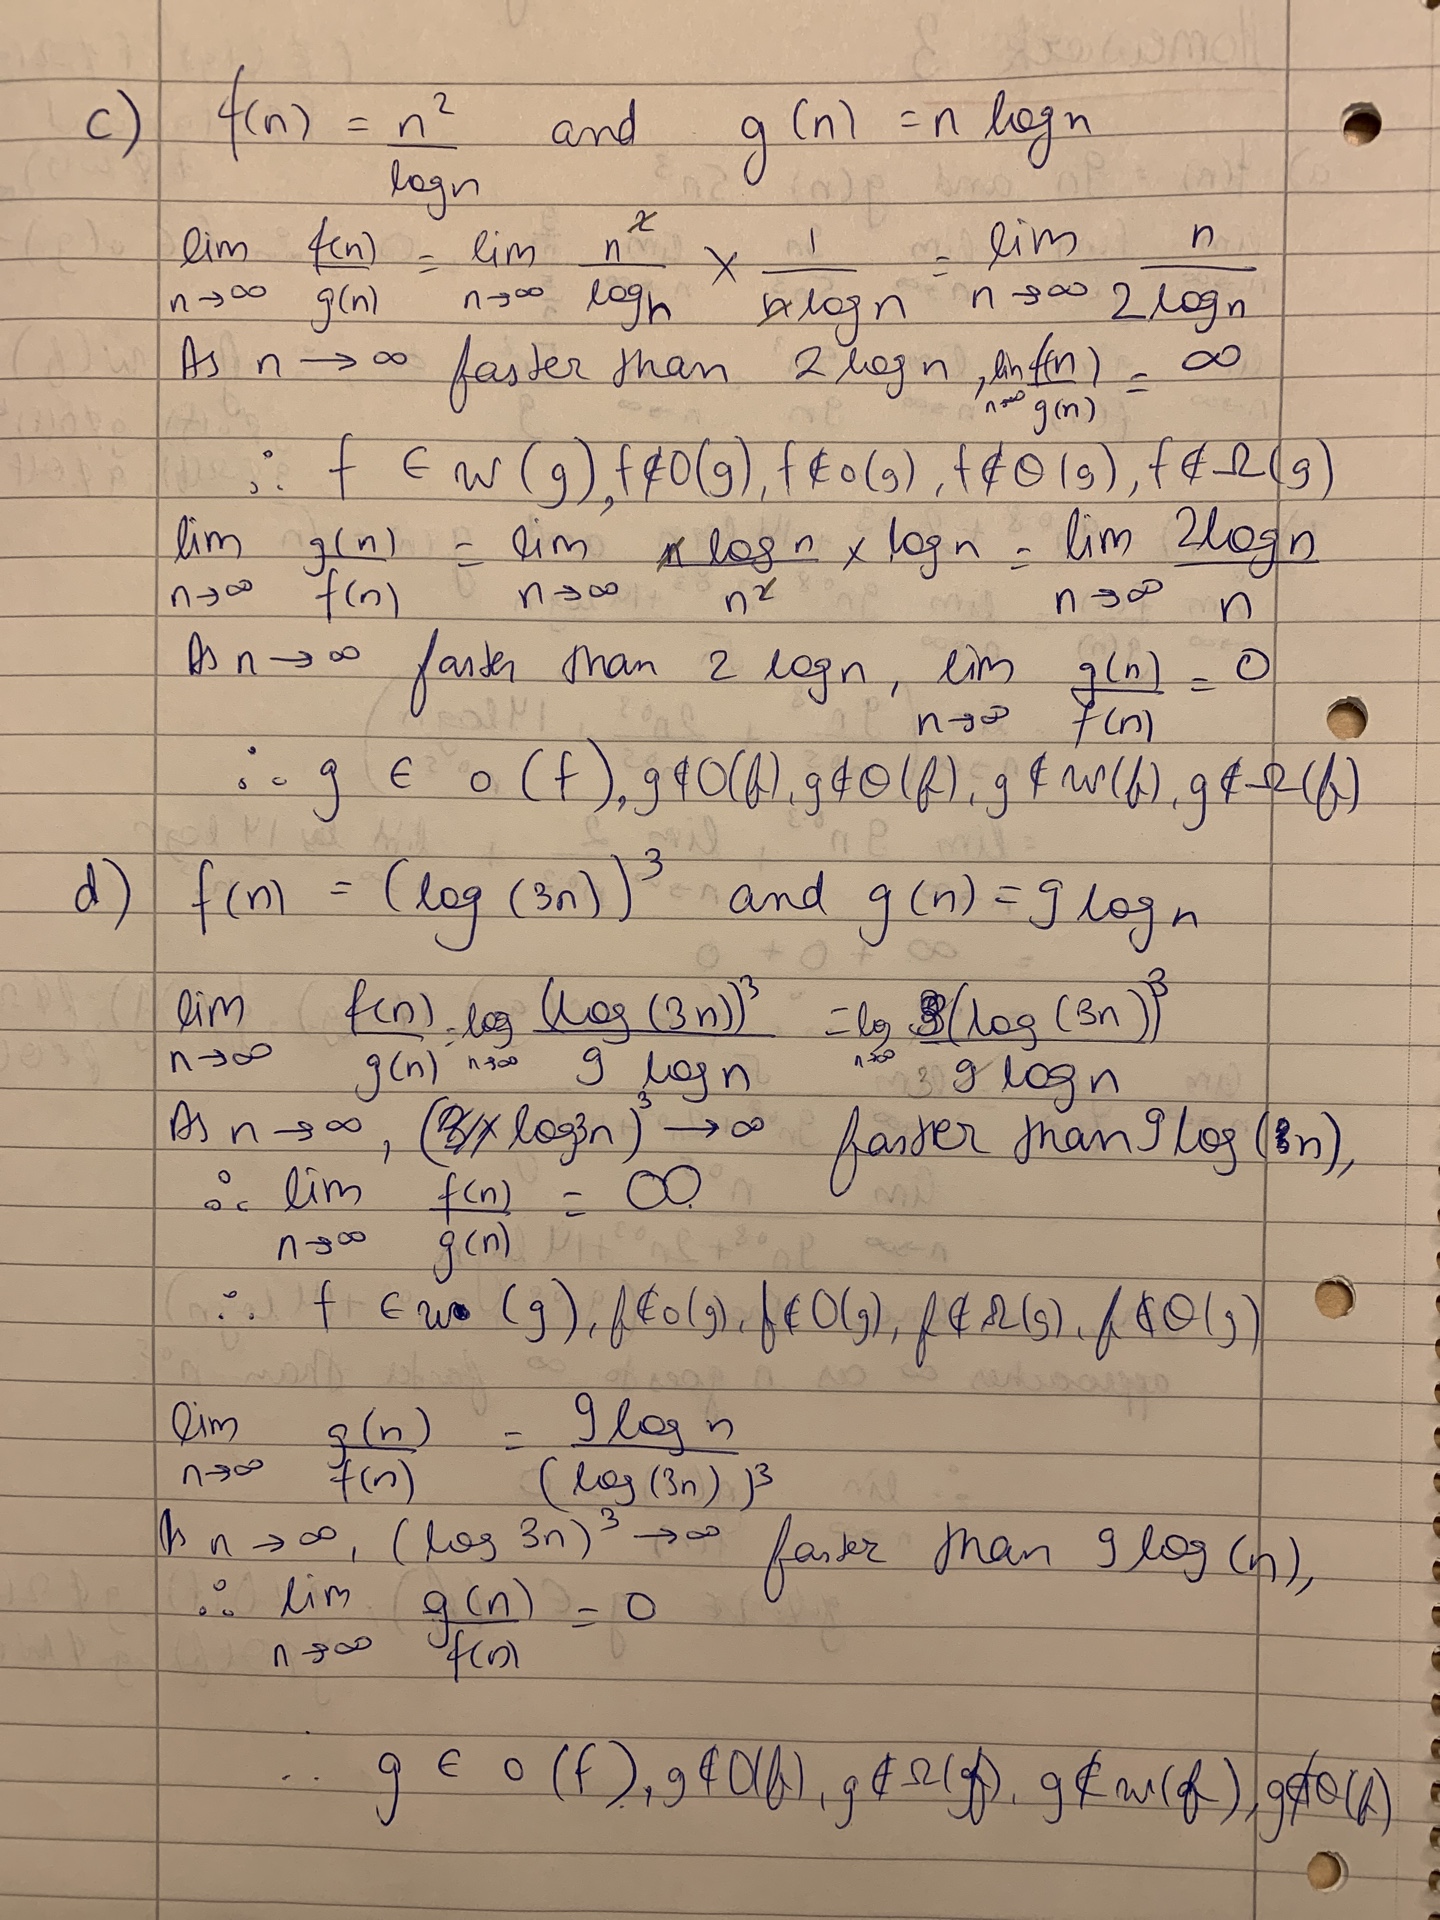 c) f(n) = n²/log n and g(n) = n log n
lim n→∞ f(n)/g(n) = lim n→∞ n²/log n × 1/(n log n) = lim n→∞ n/(2 log n)
As n → ∞ faster than 2 log n, lim n→∞ f(n)/g(n) = ∞
∴ f ∈ w(g), f ∉ O(g), f ∉ o(g), f ∉ Θ(g), f ∉ Ω(g)
lim n→∞ g(n)/f(n) = lim n→∞ (n log n)/n² × log n = lim n→∞ (2 log n)/n
As n → ∞ faster than 2 log n, lim n→∞ g(n)/f(n) = 0
∴ g ∈ o(f), g ∉ O(f), g ∉ Θ(f), g ∉ w(f), g ∉ Ω(f)
d) f(n) = (log (3n))³ and g(n) = 9 log n
lim n→∞ f(n)/g(n) = log n→∞ (log (3n))³/(9 log n) = log n→∞ (log (3n))³/(9 log n)
As n → ∞, (log 3n)³ → ∞ faster than 9 log (3n),
∴ lim n→∞ f(n)/g(n) = ∞.
∴ f ∈ w (g), f ∉ o(g), f ∉ O(g), f ∉ Ω(g), f ∉ Θ(g)
lim n→∞ g(n)/f(n) = 9 log n/(log (3n))³
As n → ∞, (log 3n)³ → ∞ faster than 9 log (n),
∴ lim n→∞ g(n)/f(n) = 0
∴ g ∈ o (f), g ∉ O(f), g ∉ Ω(f), g ∉ w(f), g ∉ Θ(f)